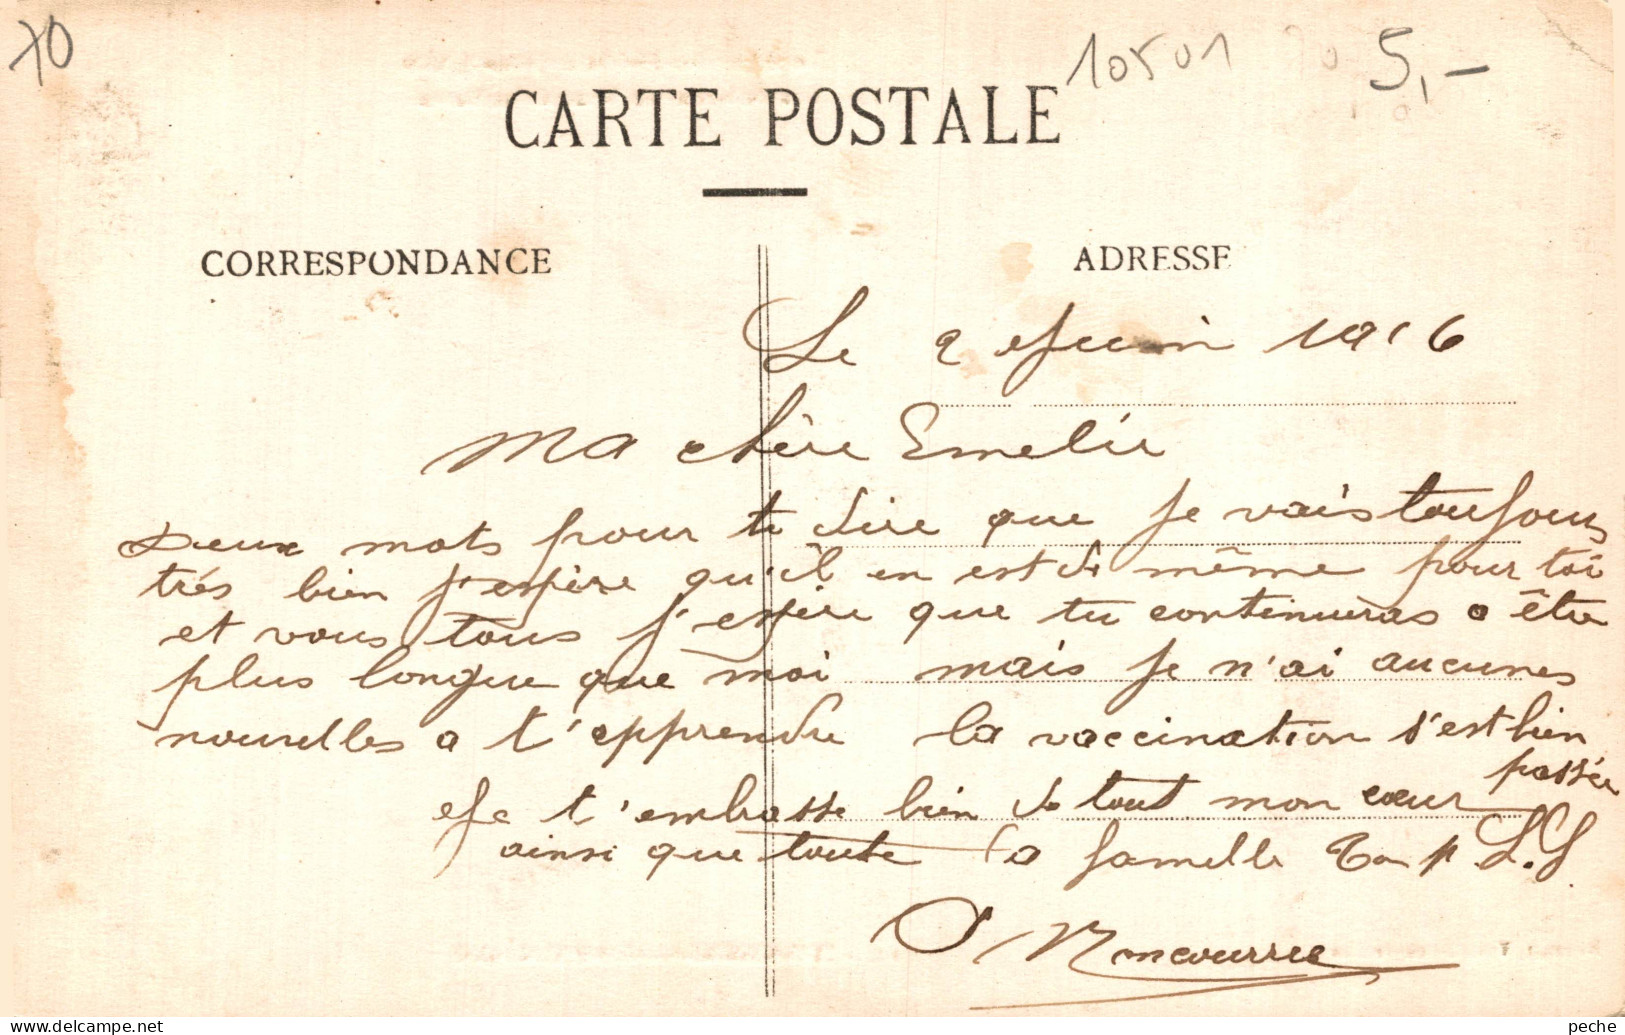 70
10501
5,-
CARTE POSTALE
CORRESPONDANCE
ADRESSE
Le 2 Juin 1916
Ma chère Emelie
Deux mots pour te dire que je vais toujours
très bien j'espère qu'il en est de même pour toi
et vous tous j'espère que tu continueras a être
plus longue que moi mais je n'ai aucunes
nouvelles a t'apprendre la vaccination s'est bien
passée
Je t'embrasse bien de tout mon cœur
ainsi que toute la famille Ton p L.J
www.delcampe.net
peche